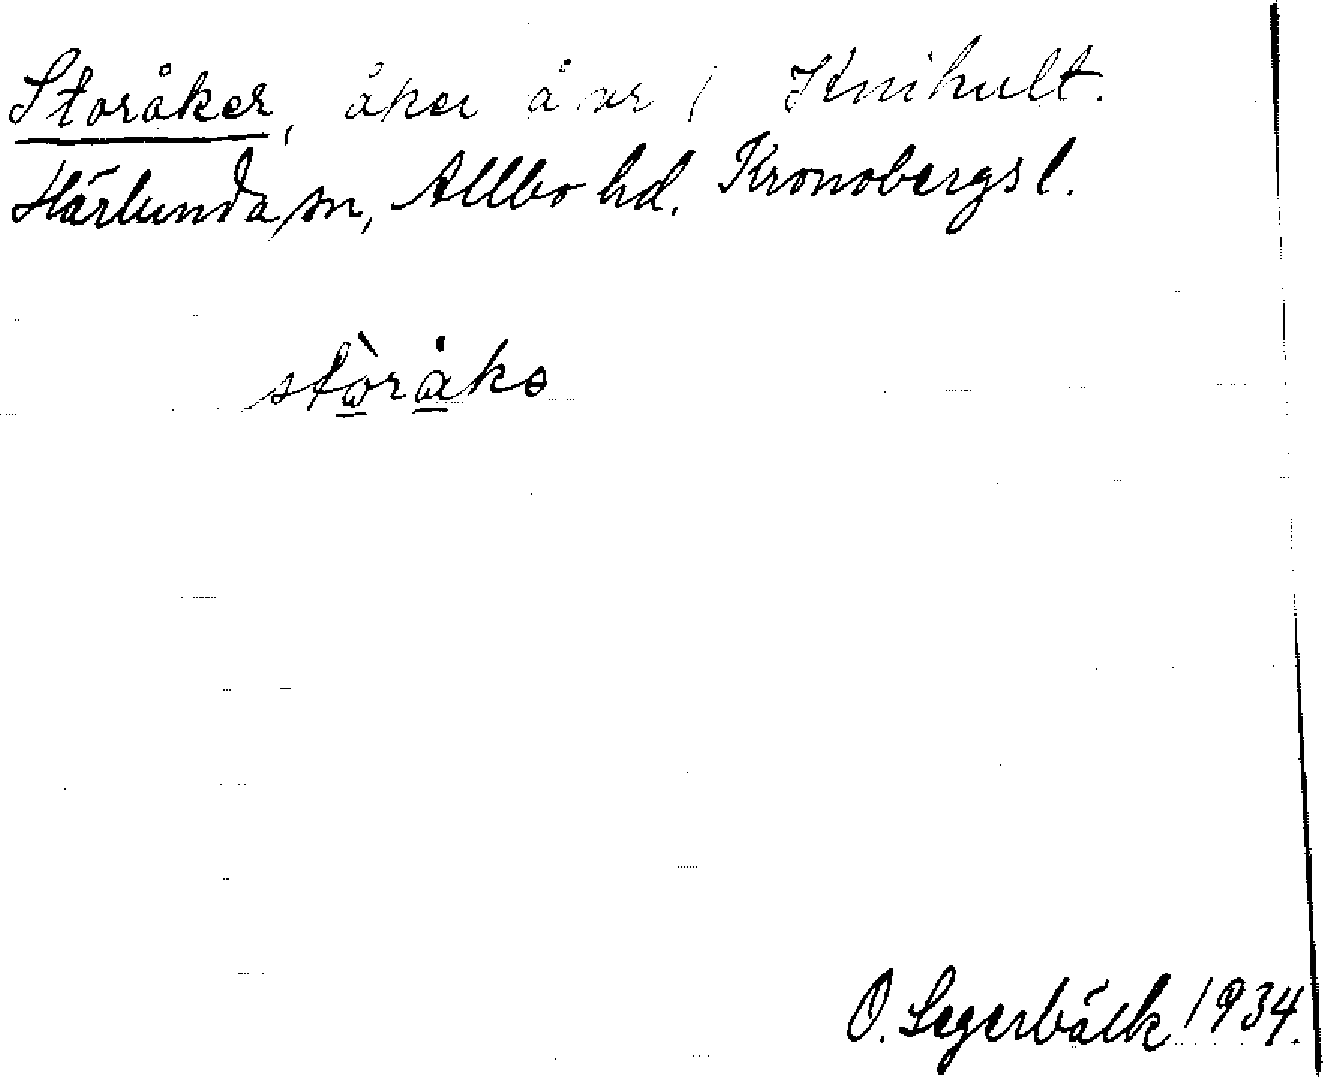 Storåker, åker å nr 1 Knihult.
Härlunda sn, Allbo hd. Kronobergs l.
stòråkə
O. Segerbäck 1934.